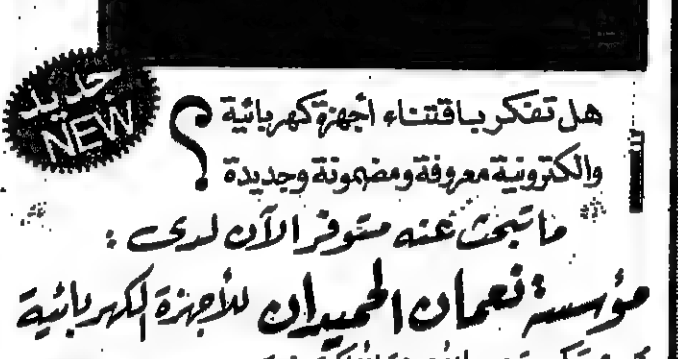 جديد
NEW
هل تفكر باقتناء أجهزة كهربائية
والكترونية معروفة ومضمونة وجديدة ؟
ما تبحث عنه متوفر الآن لدى :
مؤسسة نعمان الحميدان للأجهزة الكهربائية